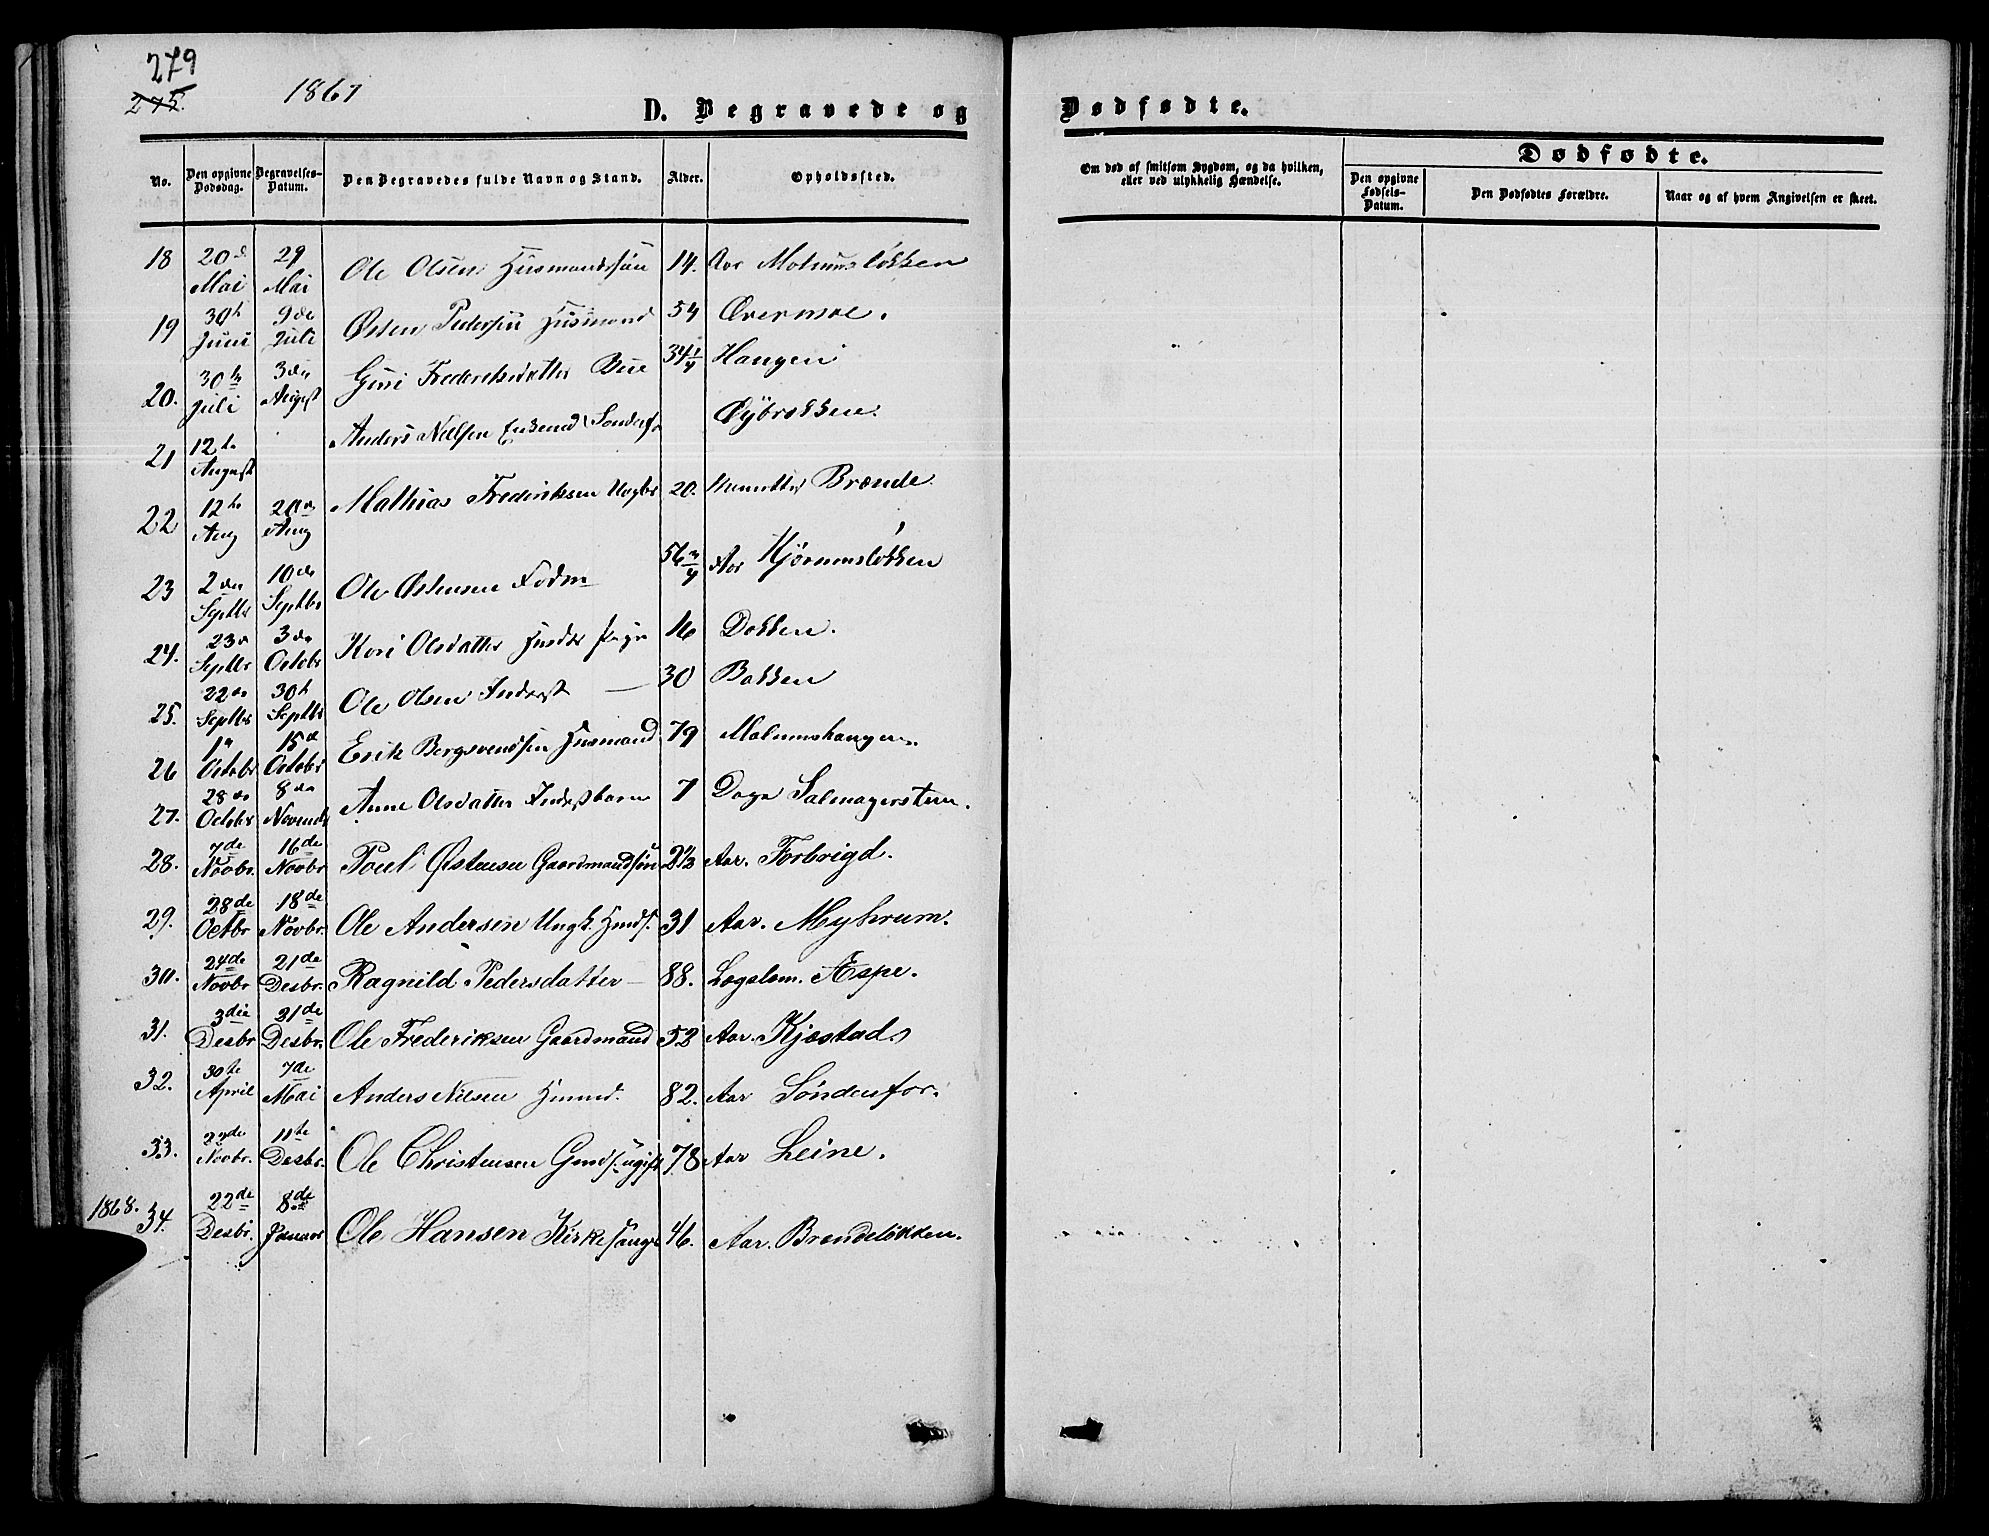 279
275.
1867
D. Begravede og
Dødfødte.
No.
Den opgivne Dødsdag.
Begravelses-Datum.
Den Begravedes fulde Navn og Stand.
Alder.
Opholdssted.
Om død af smitsom Sygdom, og da hvilken, eller ved ulykkelig Hændelse.
Dødfødte.
Den opgivne Fødsels-Datum.
Den Dødfødtes Forældre.
Naar og af hvem Angivelsen er skeet.
18 20de Mai 29 Mai Ole Olsen Husmandssøn 14. Aar Molumsløkken
19 30te Juni 9de Juli Østen Pedersen Husmand 54 Øvermoe.
20. 30te Juli 3die August Guri Frederiksdatter Bue 34 1/4 Haugen
21 12te August Anders Nielsen Enkemd Sønderfr Øybrekken.
22 12te Aug 20de Aug Mathias Frederiksen Ungkr 20. Brænde.
23 2den Septbr 10de Septbr Ole Østensen Fødm 56 3/4 Aar Kjørumsløkken
24. 23de Septbr 3die Octobr Kari Olsdatter 16 Dokken.
25. 22de Septbr 30te Septbr Ole Olsen Inderst — 30 Bakken
26 1ste Octobr 15de Octobr Erik Bergsvendsen Husmand 79 Molumshaugen.
27. 28de Octobr 8de Novembr Anne Olsdatter Inderstbarn 7 Dage Salmagerstuen.
28. 7de Novbr. 16de Novbr Poul Østensen Gaardmandssøn 2 1/2 Aar. Forbrigd.
29. 28de Octbr 18de Novbr. Ole Andersen Ungk. Hmds. 31 Aar. Myhrum.
30. 24de Novbr 21de Desbr. Ragnild Pedersdatter — 88. Lægslem. Aspe.
31. 3die Desbr 21de Desbr. Ole Frederiksen Gaardmand 52 Aar. Kjøstad
32. 30te April 7de Mai Anders Nilsen Hmand. 82. Aar Søndenfor.
33. 22de Novbr. 11te Desbr. Ole Christensen Gmds. ugift 78 Aar Leine.
1868. 34. 22de Desbr. 8de Januar Ole Hansen Kirkesanger 46. Aar. Brændeløkken.